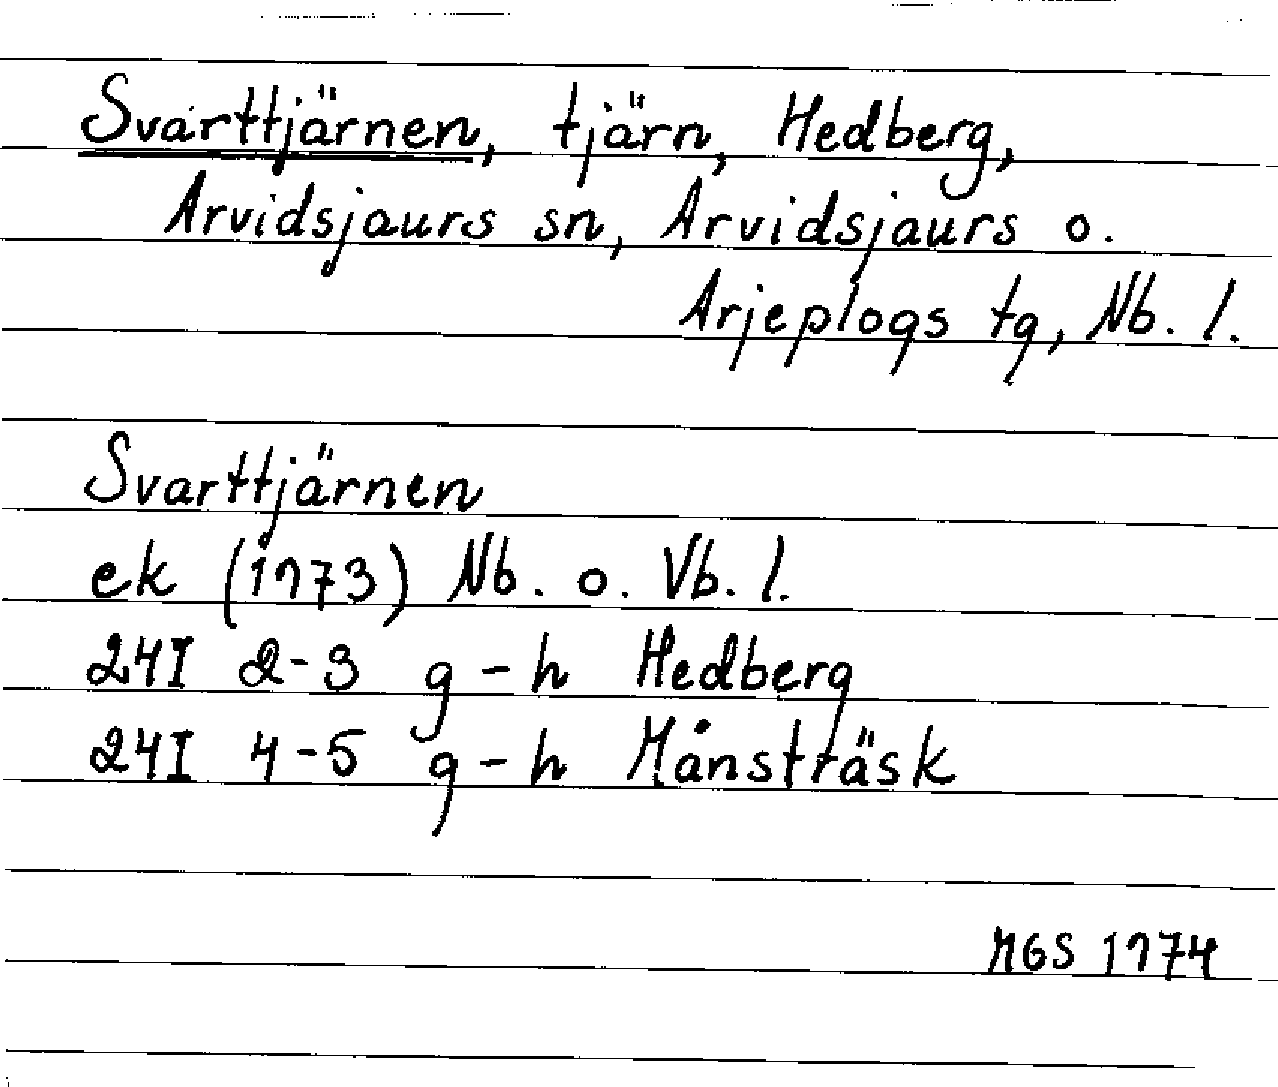 Svarttjärnen, tjärn, Hedberg,
Arvidsjaurs sn, Arvidsjaurs o.
Arjeplogs tg, Nb. l.
Svarttjärnen
ek (1973) Nb. o. Vb. l.
24I 2-3 g-h Hedberg
24I 4-5 g-h Månsträsk
MGS 1974